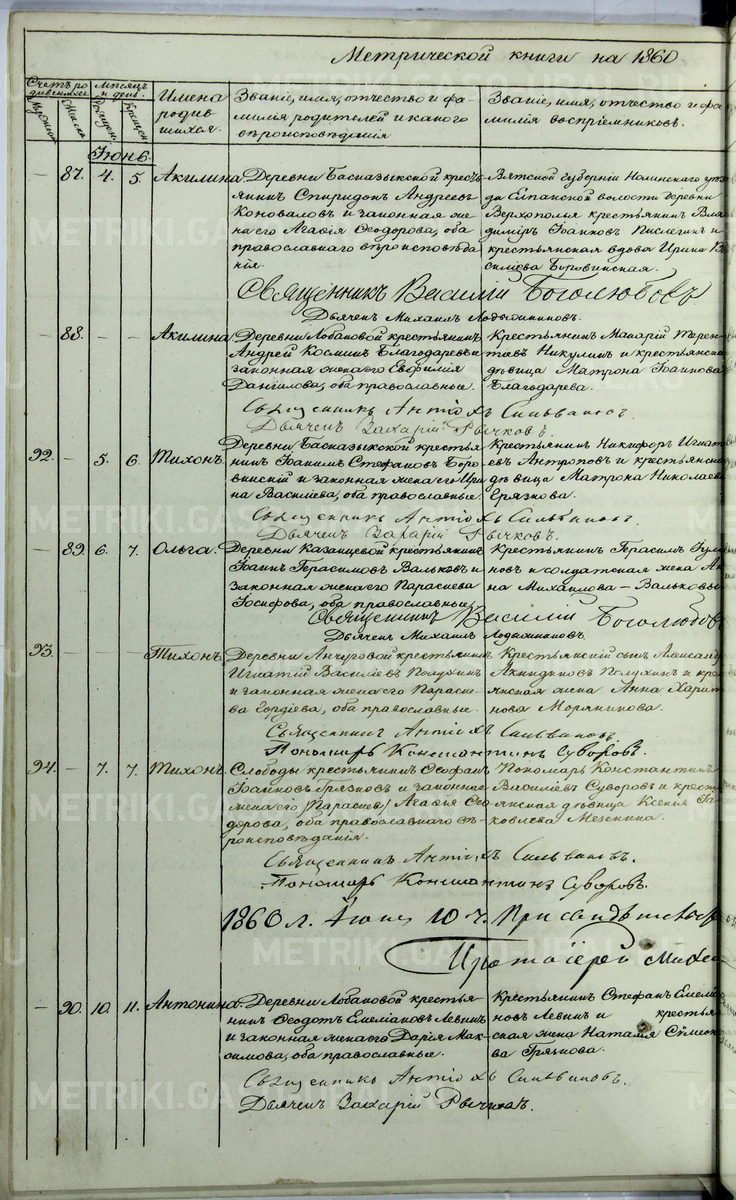 Метрической книги на 1860
Счетъ ро
дившихся.
Мѣсяцъ
и день.
Имена
родив
шихся.
Званіе, имя, отчество и фа-
милія родителей и какого
вѣроисповѣданія
Званіе, имя, отчество и фа
милія воспріемниковъ.
Іюнь.
87. 4. 5. Акилина
Деревни Баспазыкской кресть
янинъ Спиридонъ Андреевъ
Коноваловъ и законная же
на его Агафія Ѳеодорова, оба
православнаго вѣроисповѣда
нія.
Вятской губерніи Нолинскаго уѣз
да волости деревни
Верхополья крестьянинъ Вла
димиръ Іоанновъ и
крестьянская вдова Ирина Ва
силіева Боровинская.
Священникъ Василій Боголюбовъ
Дьячекъ Михаилъ
88. Акилина
Деревни Лобановой крестьянинъ
Андрей Косминъ Благодаревъ и
законная жена его Евфимія
Даніилова, оба православные.
Крестьянинъ Макарій Терен
тьевъ Никулинъ и крестьянска
дѣвица Матрона Іоаннова
Благодарева.
Священникъ Антіохъ Сильвановъ.
Дьячекъ Захарій Рычковъ.
92. 5. 6. Тихонъ.
Деревни Баспазыкской крестья
нинъ Іоаннъ Стефановъ Боро
винскій и законная жена его Ири
на Василіева, оба православные.
Крестьянинъ Никифоръ Игнат
евъ Антроповъ и крестьянска
дѣвица Матрона Николаева
Грязнова.
Священникъ Антіохъ Сильвановъ.
Дьячекъ Захарій Рычковъ.
89 6. 7. Ольга.
Деревни Казанцевой крестьянинъ
Іоаннъ Герасимовъ Вальковъ и
законная жена его Параскева
Іосифова, оба православные
Крестьянинъ Герасимъ
новъ и солдатская жена Ан
на Михаилова Вальковы
Священникъ Василій Боголюбовъ
Дьячекъ Михаилъ
93. Тихонъ
Деревни Анчуговой крестьянинъ
Игнатій Василіевъ Полухинъ
и законная жена его Параске
ва Гордіева, оба православные.
Крестьянскій сынъ Александръ
Акиндиновъ Полухинъ и кре
янская жена Анна Харит
нова Морянинова.
Священникъ Антіохъ Сильвановъ.
Пономарь Константинъ Суворовъ.
94. 7. 7. Тихонъ
Слободы крестьянинъ Ѳеофанъ
Іоанновъ Грязновъ и законная
жена его /Параскев/ Агафія Ѳео
дорова, оба православнаго вѣ-
роисповѣданія.
Пономарь Константинъ
Василіевъ Суворовъ и крест
янская дѣвица Ксенія Іа
ковлева Мезенина.
Священникъ Антіохъ Сильвановъ.
Пономарь Константинъ Суворовъ.
1860 г. Іюня 10 ч. При свидѣтельст
Протоіерей Михаи
90. 10. 11. Антонина.
Деревни Лобановой крестья-
нинъ Ѳеодотъ Емеліановъ Левинъ
и законная жена его Дарія Мак
симова, оба православные.
Крестьянинъ Стефанъ Емелія
новъ Левинъ и крестья
ская жена Наталія Симеоно
ва Грязнова.
Священникъ Антіохъ Сильвановъ.
Дьячекъ Захарій Рычковъ.